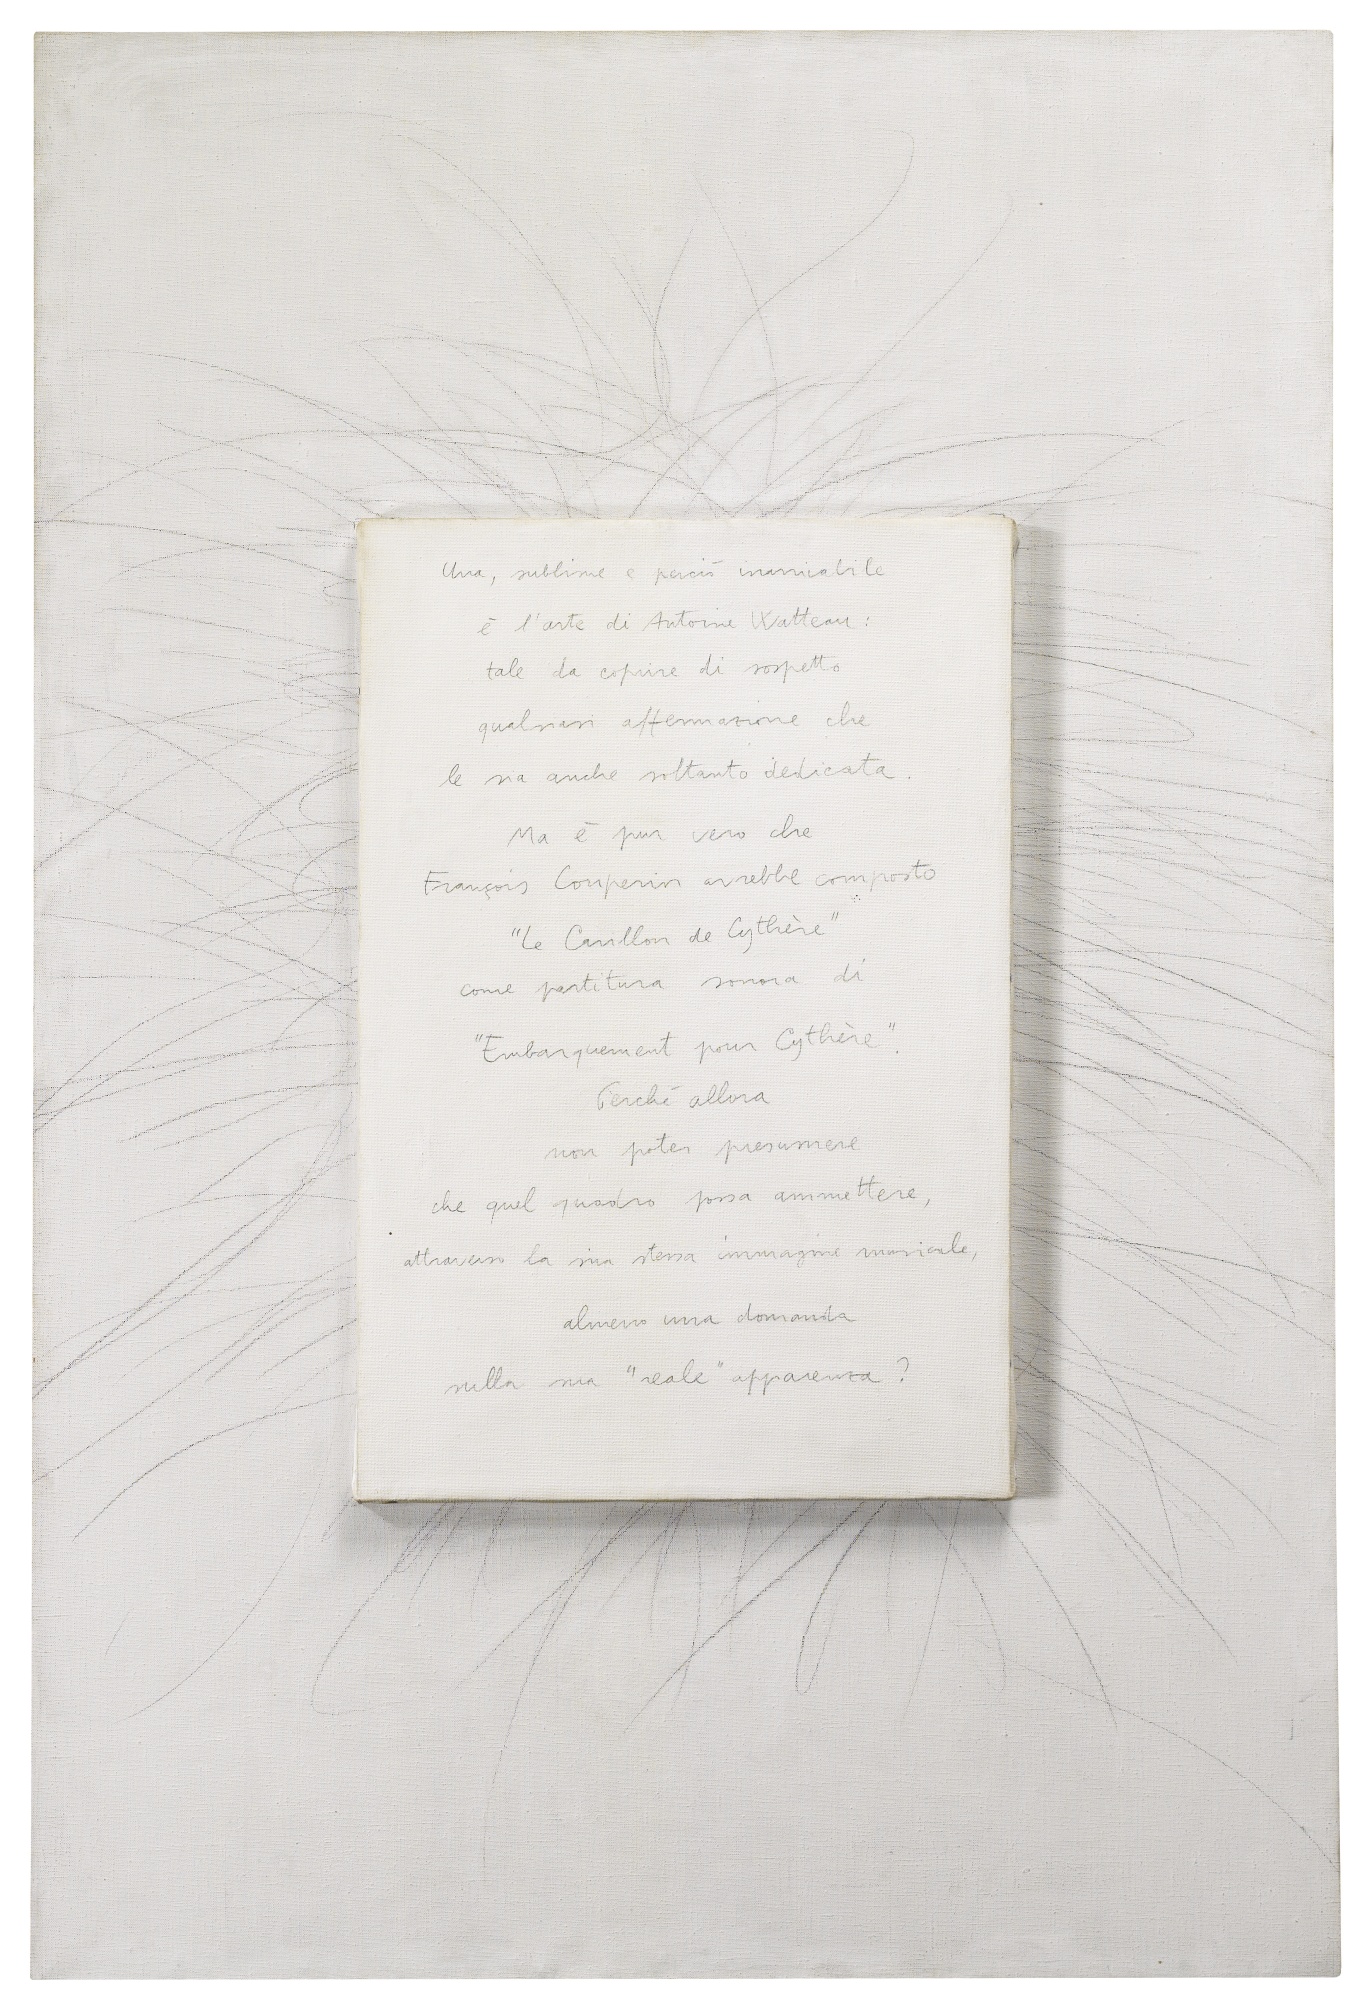 Una, sublime e perciò inamicabile
è l'arte di Antoine Watteau:
tale da coprire di sospetto
qualsiasi affermazione che
le sia anche soltanto dedicata.
Ma è pur vero che
François Couperin avrebbe composto
"Le Carillon de Cythère"
come partitura sonora di
"Embarquement pour Cythère".
Perché allora
non poter presumere
che quel quadro possa ammettere,
attraverso la sua stessa immagine musicale,
almeno una domanda
sulla sua "reale" apparenza?